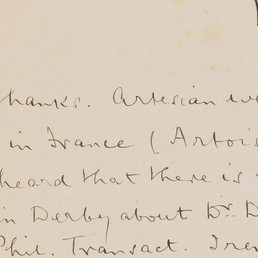 thanks. Artesian we
in France (Artois
heard that there is
in Derby about Dr. D
Phil. Transact. I rem